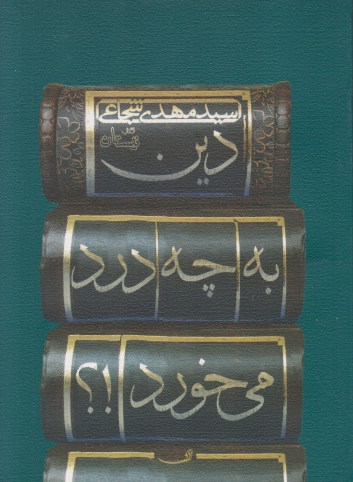 سید مهدی شجاعی
کتاب نیستان
دین
به چه درد
می خورد !؟